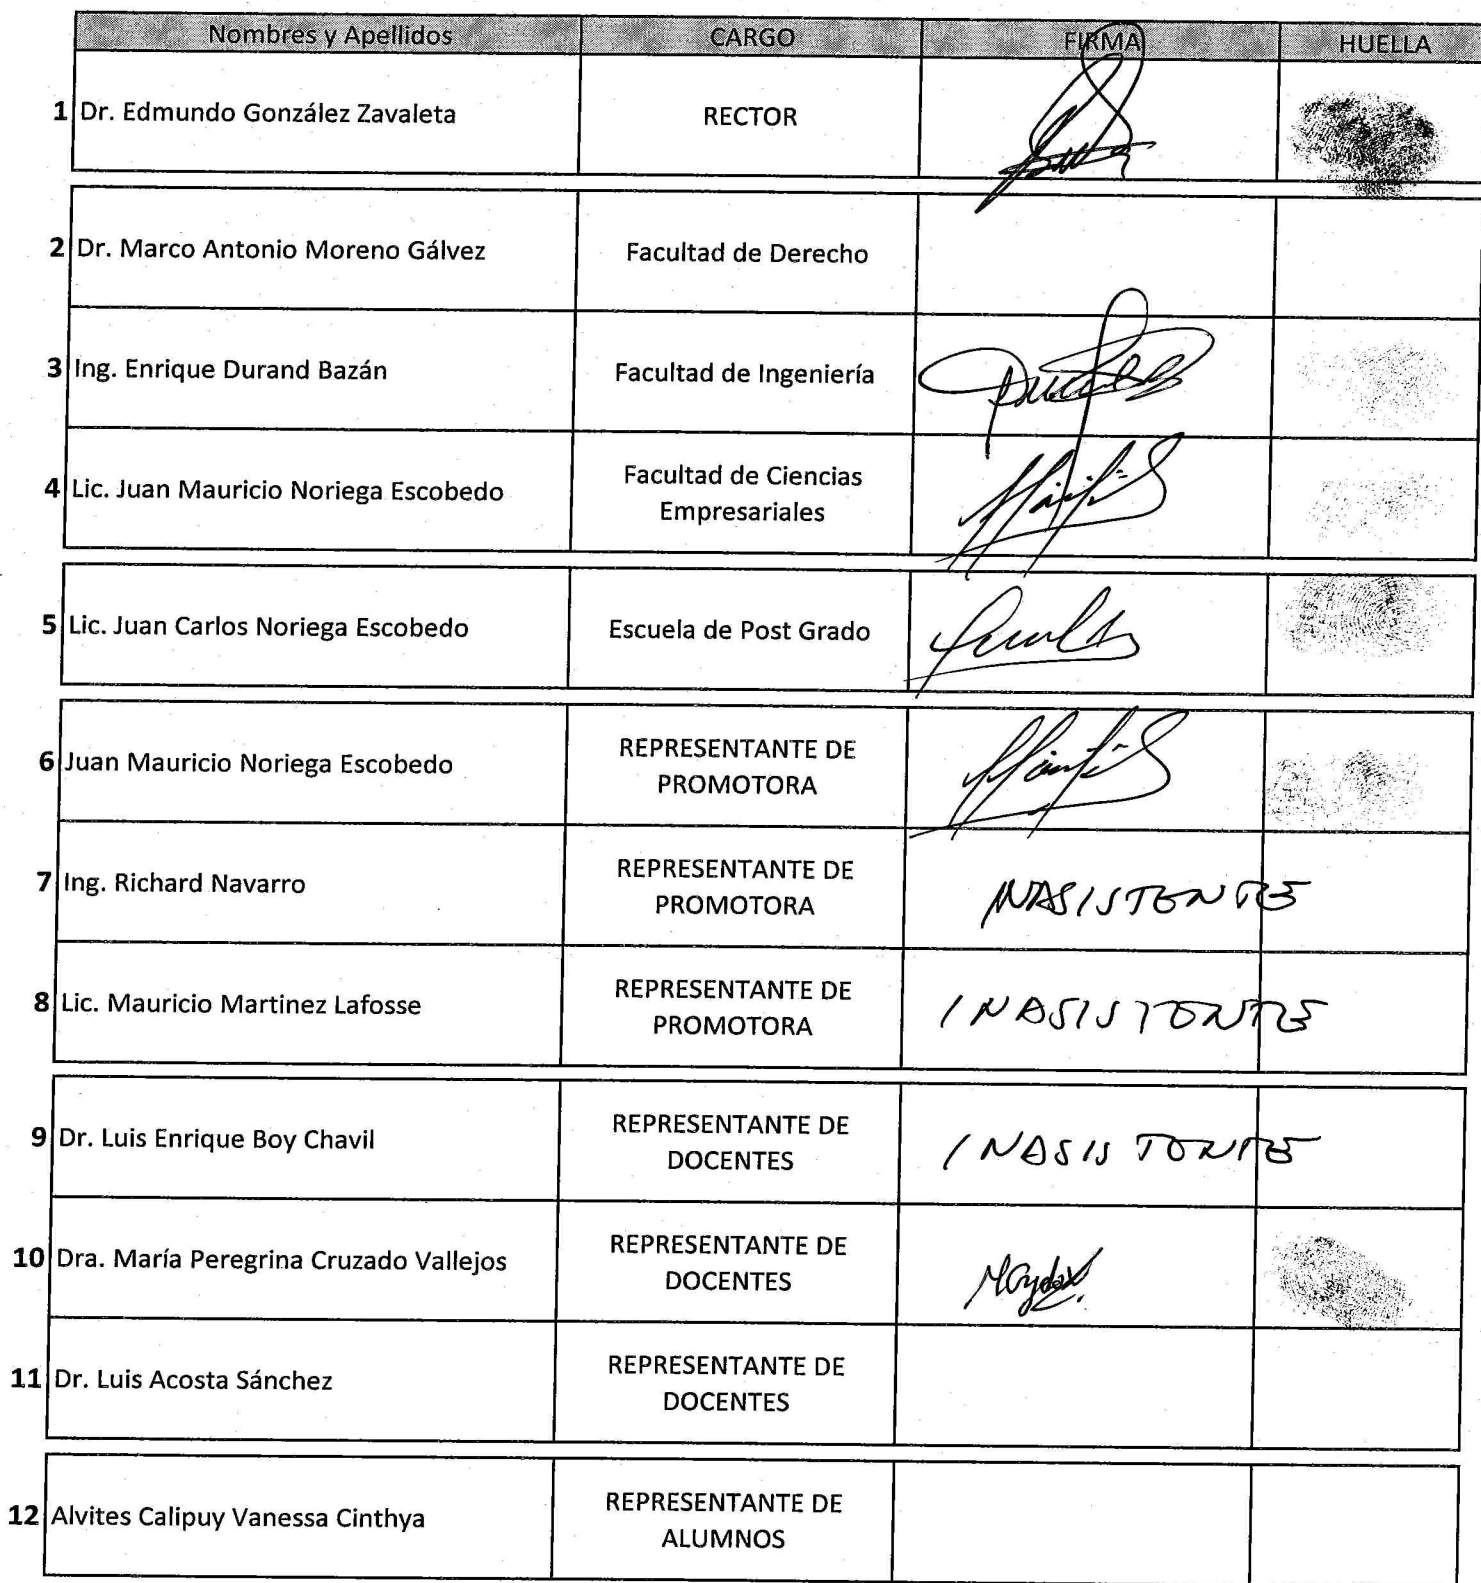 Nombres y Apellidos CARGO FIRMA HUELLA
1 Dr. Edmundo González Zavaleta RECTOR
2 Dr. Marco Antonio Moreno Gálvez Facultad de Derecho
3 Ing. Enrique Durand Bazán Facultad de Ingeniería
4 Lic. Juan Mauricio Noriega Escobedo Facultad de Ciencias
Empresariales
5 Lic. Juan Carlos Noriega Escobedo Escuela de Post Grado
6 Juan Mauricio Noriega Escobedo REPRESENTANTE DE
PROMOTORA
7 Ing. Richard Navarro REPRESENTANTE DE
PROMOTORA INASISTENTE
8 Lic. Mauricio Martinez Lafosse REPRESENTANTE DE
PROMOTORA INASISTENTE
9 Dr. Luis Enrique Boy Chavil REPRESENTANTE DE
DOCENTES INASISTENTE
10 Dra. María Peregrina Cruzado Vallejos REPRESENTANTE DE
DOCENTES
11 Dr. Luis Acosta Sánchez REPRESENTANTE DE
DOCENTES
12 Alvites Calipuy Vanessa Cinthya REPRESENTANTE DE
ALUMNOS